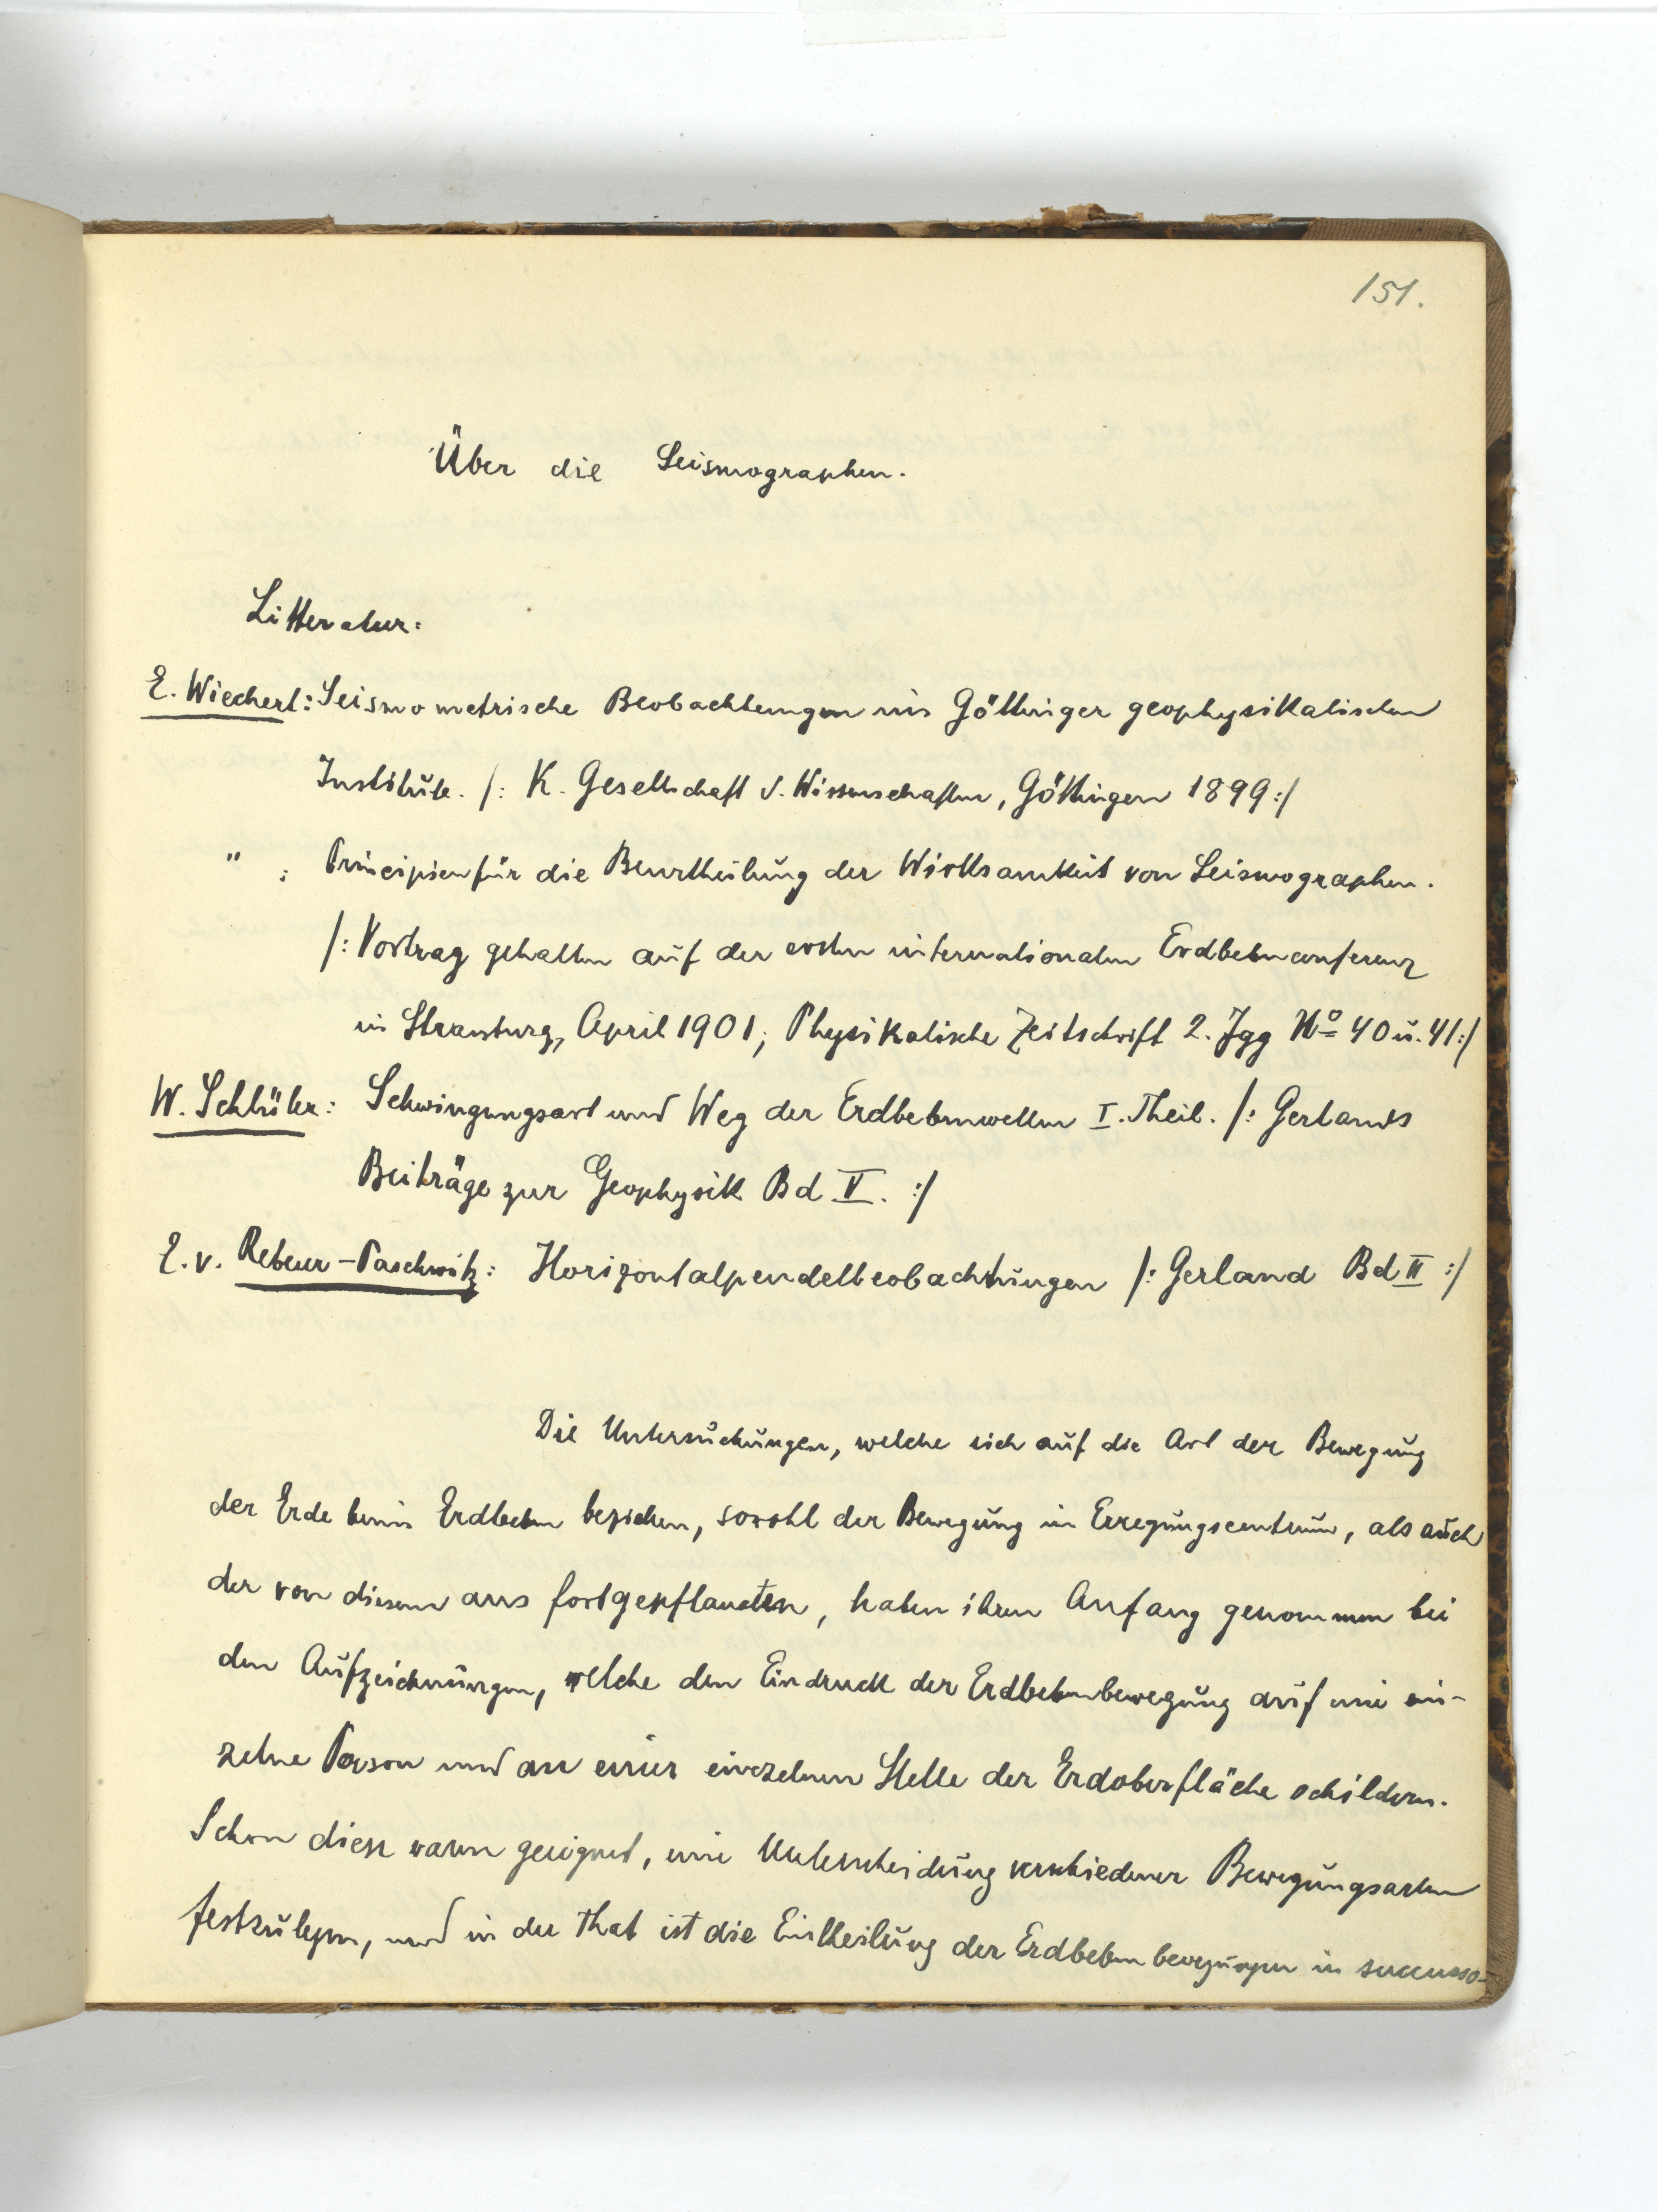 151.
Über die Seismographen.
Litteratur:
E. Wiechert: Seismometrische Beobachtungen im Göttinger geophysikalischen
Institute. /: K. Gesellschaft d. Wissenschaften, Göttingen 1899 :/
" : Principien für die Beurtheilung der Wirksamkeit von Seismographen.
/: Vortrag gehalten auf der ersten internationalen Erdbebenconferenz
in Strassburg, April 1901; Physikalische Zeitschrift 2. Jgg No 40 u. 41 :/
W. Schlüter: Schwingungsart und Weg der Erdbebenwellen I. Theil. /: Gerlands
Beiträge zur Geophysik Bd V. :/
E. v. Rebeur-Paschwitz: Horizontalpendelbeobachtungen /: Gerland Bd II :/
Die Untersuchungen, welche sich auf die Art der Bewegung
der Erde beim Erdbeben beziehen, sowohl der Bewegung im Erregungscentrum, als auch
der von diesem aus fortgepflanzten, haben ihren Anfang genommen bei
den Aufzeichnungen, welche den Eindruck der Erdbebenbewegung auf eine ein-
zelne Person und an einer einzelnen Stelle der Erdoberfläche schildern.
Schon diese waren geeignet, eine Unterscheidung verschiedener Bewegungsarten
festzulegen, und in der That ist die Eintheilung der Erdbebenbewegungen in succusso-